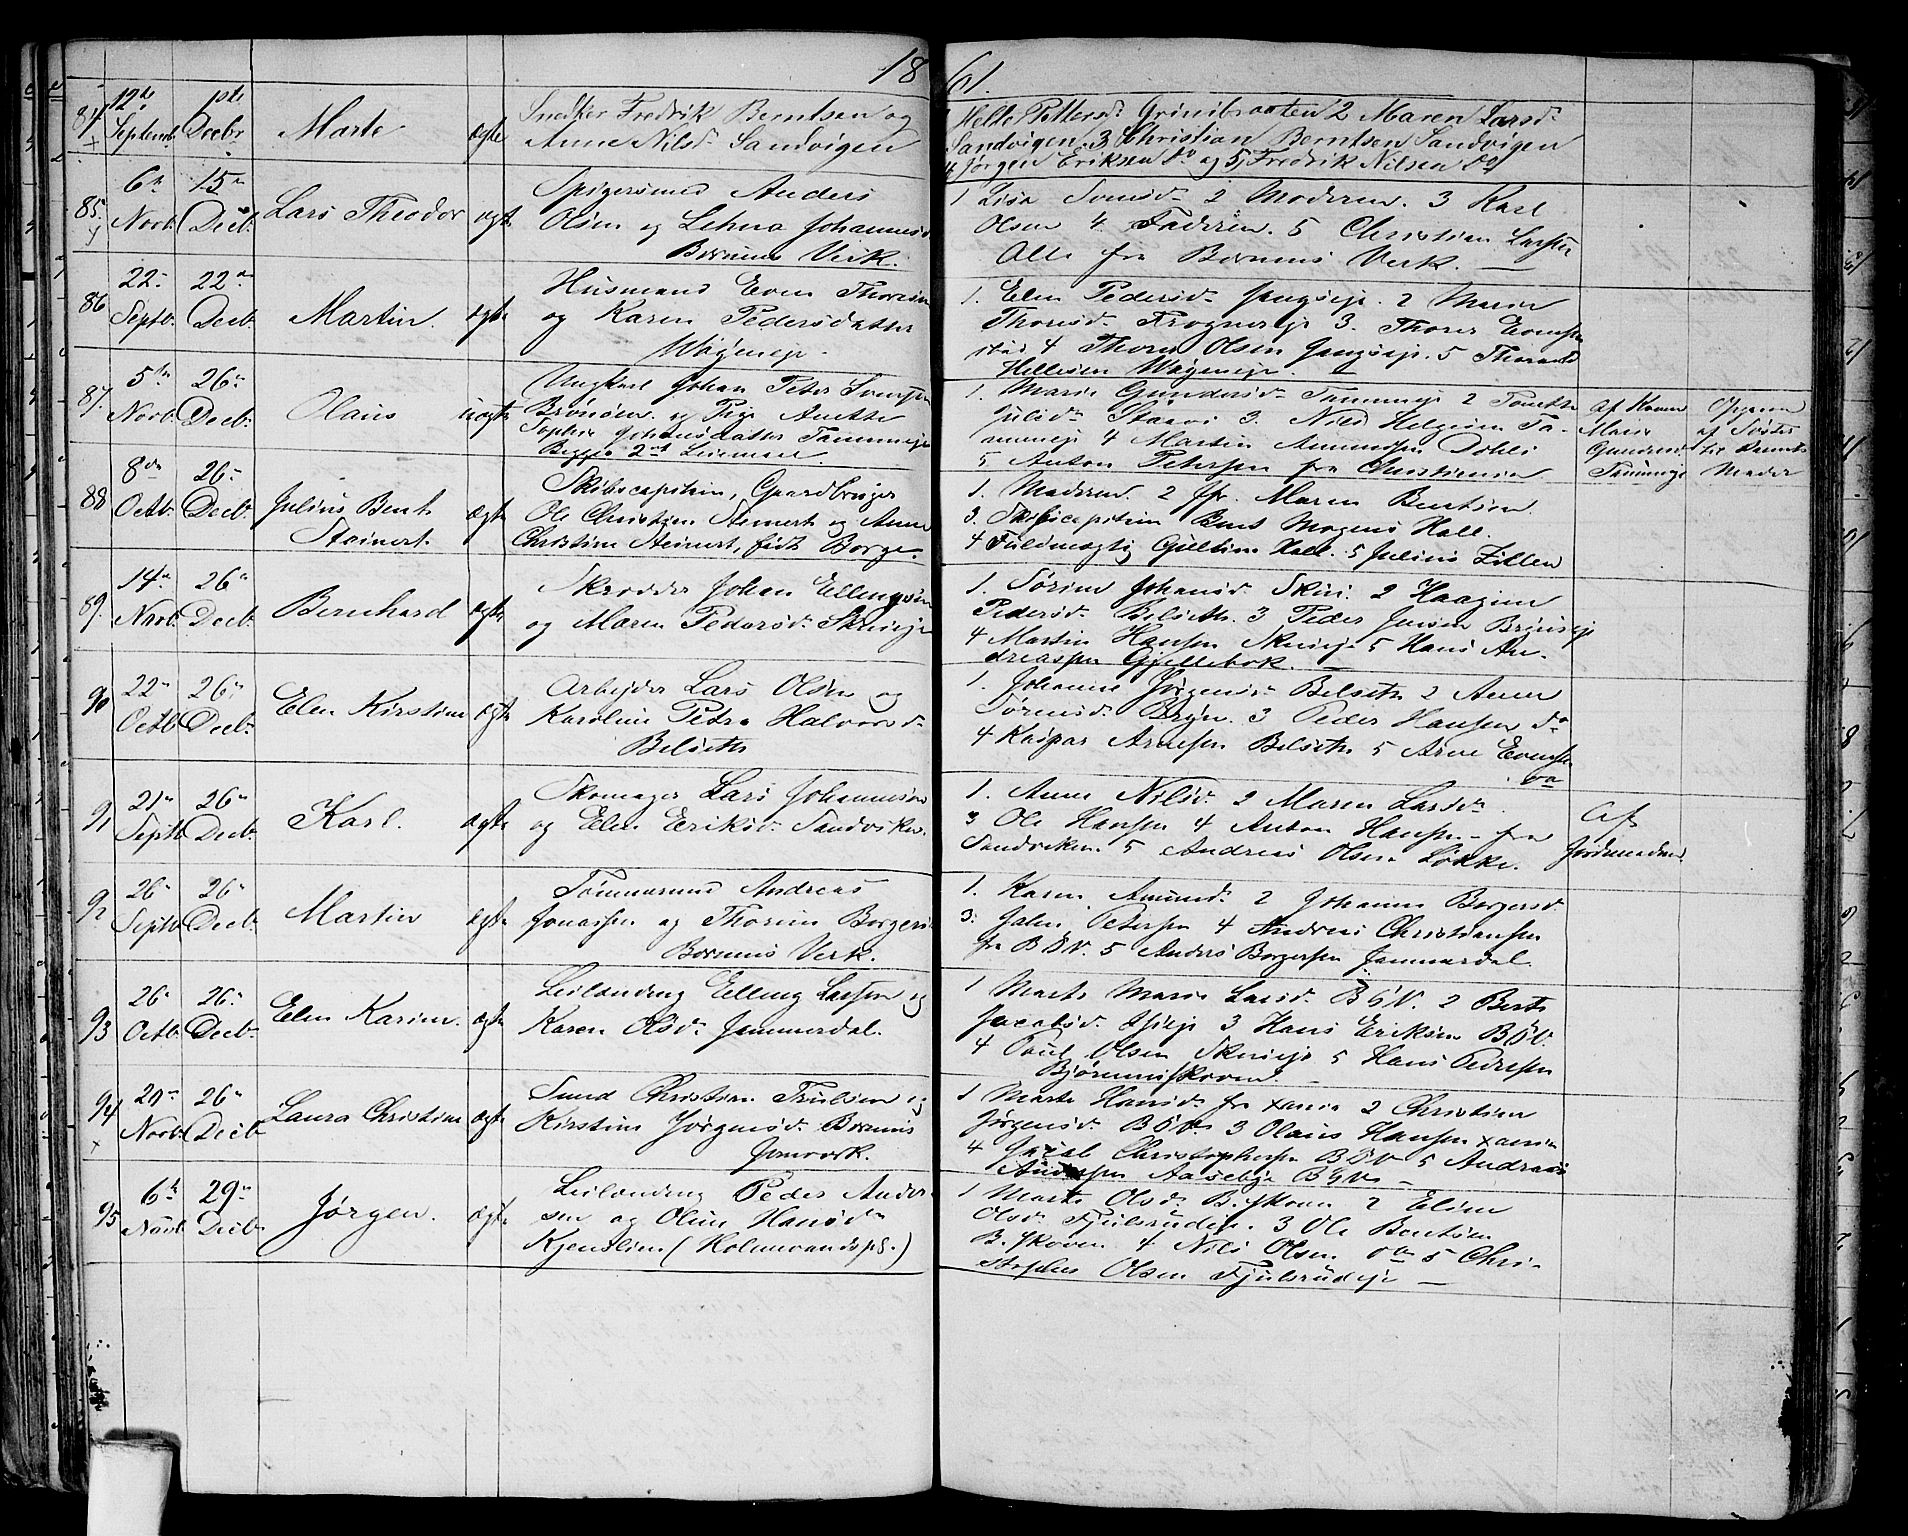 18 61.
84 12te Septemb. 1ste Decbr Marte ægte Snedker Fredrik Berntsen og
Anne Nilsd. Sandvigen
1 Helle Pettersd. Grinibraaten 2 Maren Larsd.
Sandvigen. 3 Christian Berntsen Sandvigen
4 Jørgen Eriksen do og 5 Fredrik Nilsen do
85. 6te Novb. 15de Decb. Lars Theodor ægte Spigersmed Anders
Olsen og Lehna Johannesd.
Bærums Verk.
1 Lisa 2 Moderen. 3 Karl
Olsen 4 Faderen. 5 Christian Larsen
Alle fra Bærums Verk. —
86 22. Septb. 22de Decb. Martin. ægte Husmand Even Thoresen
og Karen Pedersdatter
Wøyeneje.
1. Elen Pedersd. 2 Maren
Thoresd. Frogner 3. Thorer Evensen
4 Thorer Olsen 5 Thorvald
Hellesen Wøyeneje.
87. 5te Novb. 26. Decb. Olaus uægte Ungkarl Johan Peter
og Pige Anette
Sophie Johansdatter
Begges 2det Leiermaal.
1. Marie Gundersd. 2
3. Nils
4 Martin Amundsen Dæhli
5 Anton Petersen fra Christiania.
Af Konen
Marie
Gundersd.
af
til Barnets
Moder
88 8de Octb. 26. Decb. Julius Bent
Steinert. ægte Skibscapitain, Gaardbruger
Ole Christian Steinert og Anne
Christine Steinert, født Borge.
1. Moderen. 2 Jfr. Maren Bentsen
3. Skibscapitain Bent Mogens Hall.
4 Fuldmægtig Hall. 5 Julius Zillen
89. 14de Novb. 26de Decb. Bernhard ægte Skrædder Johan Ellingsen
og Maren Pedersd. Skuieje
1. Sørine Johansd. Skui. 2
Pedersd. Belseth. 3 Peder Jensen
4 Martin Hansen Skuieje 5 Hans An-
dreassen Gjellebek. —
90 22de Octb. 26de Decb. Elen Kirstine ægte Arbejder Lars Olsen og
Karoline Petra Halvorsd.
Belseth
1. Johanne Jørgensd. Belseth 2 Anne
Sørensd. Bryn. 3 Peder Hansen do
4 Kaspar Arnesen Belseth 5 Arne Evensen
do
91 21de Septb. 26de Decb. Karl. ægte Skomager Lars Johannesen
og Elen Eriksd. Sandviken.
1. Anne Nilsd. 2 Maren Larsd.
3 Ole Hansen 4 Anton Hansen – fra
Sandviken. 5 Andreas Olsen Løkke.
Af
Jordmoderen
92 26. Septb. 26. Decb. Martin ægte Tømmermand Andreas
Jonassen og Thorine Borgersd.
Bærums Verk.
1. Karen Amundsd. 2 Johanne Borgersd.
3. Petersen 4 Andreas Christiansen
fra BgV. 5 Anders Borgersen Jammerdal.
93 26. Octb. 26. Decb. Elen Karine. ægte Leilænding Elling Larsen og
Karen Olsd. Jammerdal.
1 Marte Marie Larsd. BgV. 2 Berte
Jacobsd. 3 Hans Eriksen BgV.
4 Paul Olsen Skuieje 5 Hans Pedersen
Bjørumskoven. —
94 29de Novb. 26de Decb. Laura Christine ægte Smed Christian Trulsen og
Kirstine Jørgensd. Bærums
Jernverk.
1 Marte Hansd. fra xania 2 Christine
Jørgensd. BgV. 3 Olaus Hansen xania
4 Jacob Christophersen BgV 5 Andreas
Andersen BgV. —
95 6te Novb. 29de Decb. Jørgen. ægte Leilænding Peder Ander-
sen og Oline Hansd.
Kjendlien (Holmevandspl.)
1 Marte Olsd. B. skoven 2 Eline
Olsd. Fjulsruden. 3 Ole Berntsen
B. skoven 4 Nils Olsen do 5 Chri-
stopher Olsen Fjulsrudeje —